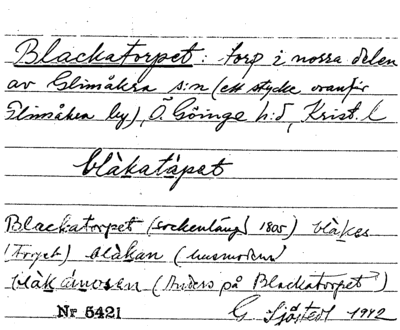 Blackatorpet: torp i norra delen
av Glimåkra s:n (ett stycke ovanför
Glimåkra by), Ö. Göinge h:d, Krist. l
blàkatápet
Blackatorpet (sockenlängd 1805) blàkes
(torpet) blàkan (husmodern)
blàkámosen (Anders på Blackatorpet)
Nr 5421 G. Sjöstedt 1942